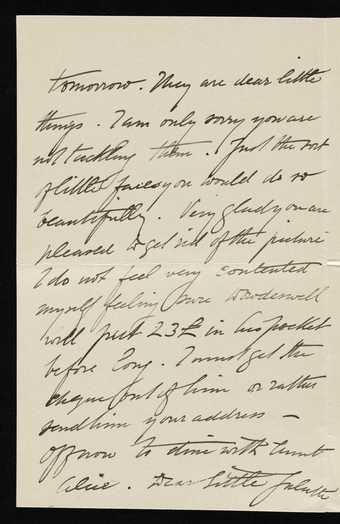 tomorrow. They are dear little
things. I am only sorry you are
not tackling them. Just the sort
of little faces you would do so
beautifully. Very glad you are
pleased to get rid of the picture
I do not feel very contented
myself feeling sure
will put 23£ in his pocket
before long. I must get the
cheque out of him or rather
send him your address —
Off now to dine with Aunt
Alice. Dear Little Juliette